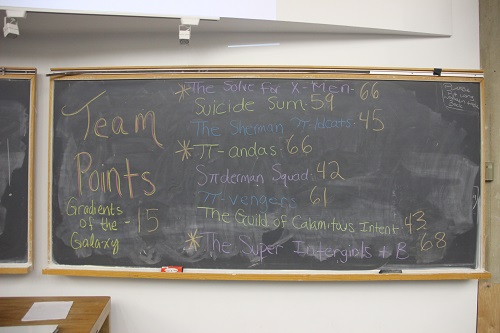 Team
Points
Gradients
of the - 15
Galaxy
*The Solve for X-Men- 66
Suicide Sum-59
The Sherman π-ldcats- 45
*π-andas: 66
Spiderman Squad: 42
π-vengers 61
The Guild of Calamitous Intent- 43
*The Super Intergirls + B 68